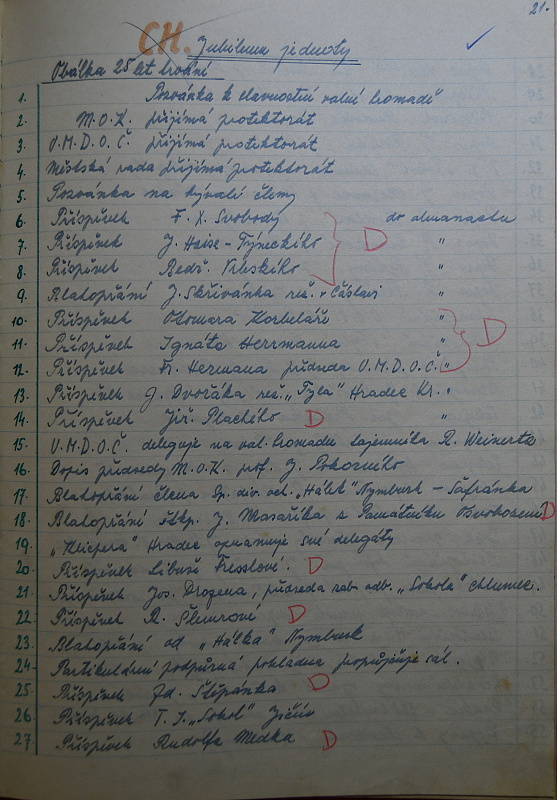 21.
CH. Jubileum jednoty
Obálka 25 let trvání
1. Pozvánka k slavnostní valné hromadě
2. M.O.K. přijímá protektorát
3. Ú.M.D.O.Č. přijímá protektorát
4. Městská rada přijímá protektorát
5. Pozvánka na bývalé členy
6. Příspěvek F. X. Svobody do almanachu
7. Příspěvek J. Haise-Týneckého D "
8. Příspěvek Bedř. Vrbského "
9. Blahopřání J. Skřivánka rež. v Čáslavi "
10. Příspěvek Otomara Korbeláře "
11. Příspěvek Ignáta Herrmanna " D
12. Příspěvek Fr. Hermana předseda Ú.M.D.O.Č. "
13. Příspěvek J. Dvořáka rež. „Tyla" Hradec Kr. "
14. Příspěvek Jiř. Plachého D "
15. Ú.M.D.O.Č. deleguje na val. hromadu tajemníka R. Weinerta
16. Dopis předsedy M.O.K. prof. J. Pokorného
17. Blahopřání člena Sp. div. och. „Hálek" Nymburk - Šafránka
18. Blahopřání J. Masaříka z Památníku Osvobození D
19. „Klicpera" Hradec oznamuje své delegáty
20. Příspěvek Libuše Freslové. D
21. Příspěvek Jos. Drogena, předseda zab. odb. „Sokola" Chlumec.
22. Příspěvek R. Šlemrové D
23. Blahopřání od „Hálka" Nymburk
24. Partikulární podpůrná pokladna propůjčuje sál.
25. Příspěvek Zd. Štěpánka D
26. Příspěvek T. J. „Sokol" Jičín
27. Příspěvek Rudolfa Medka D